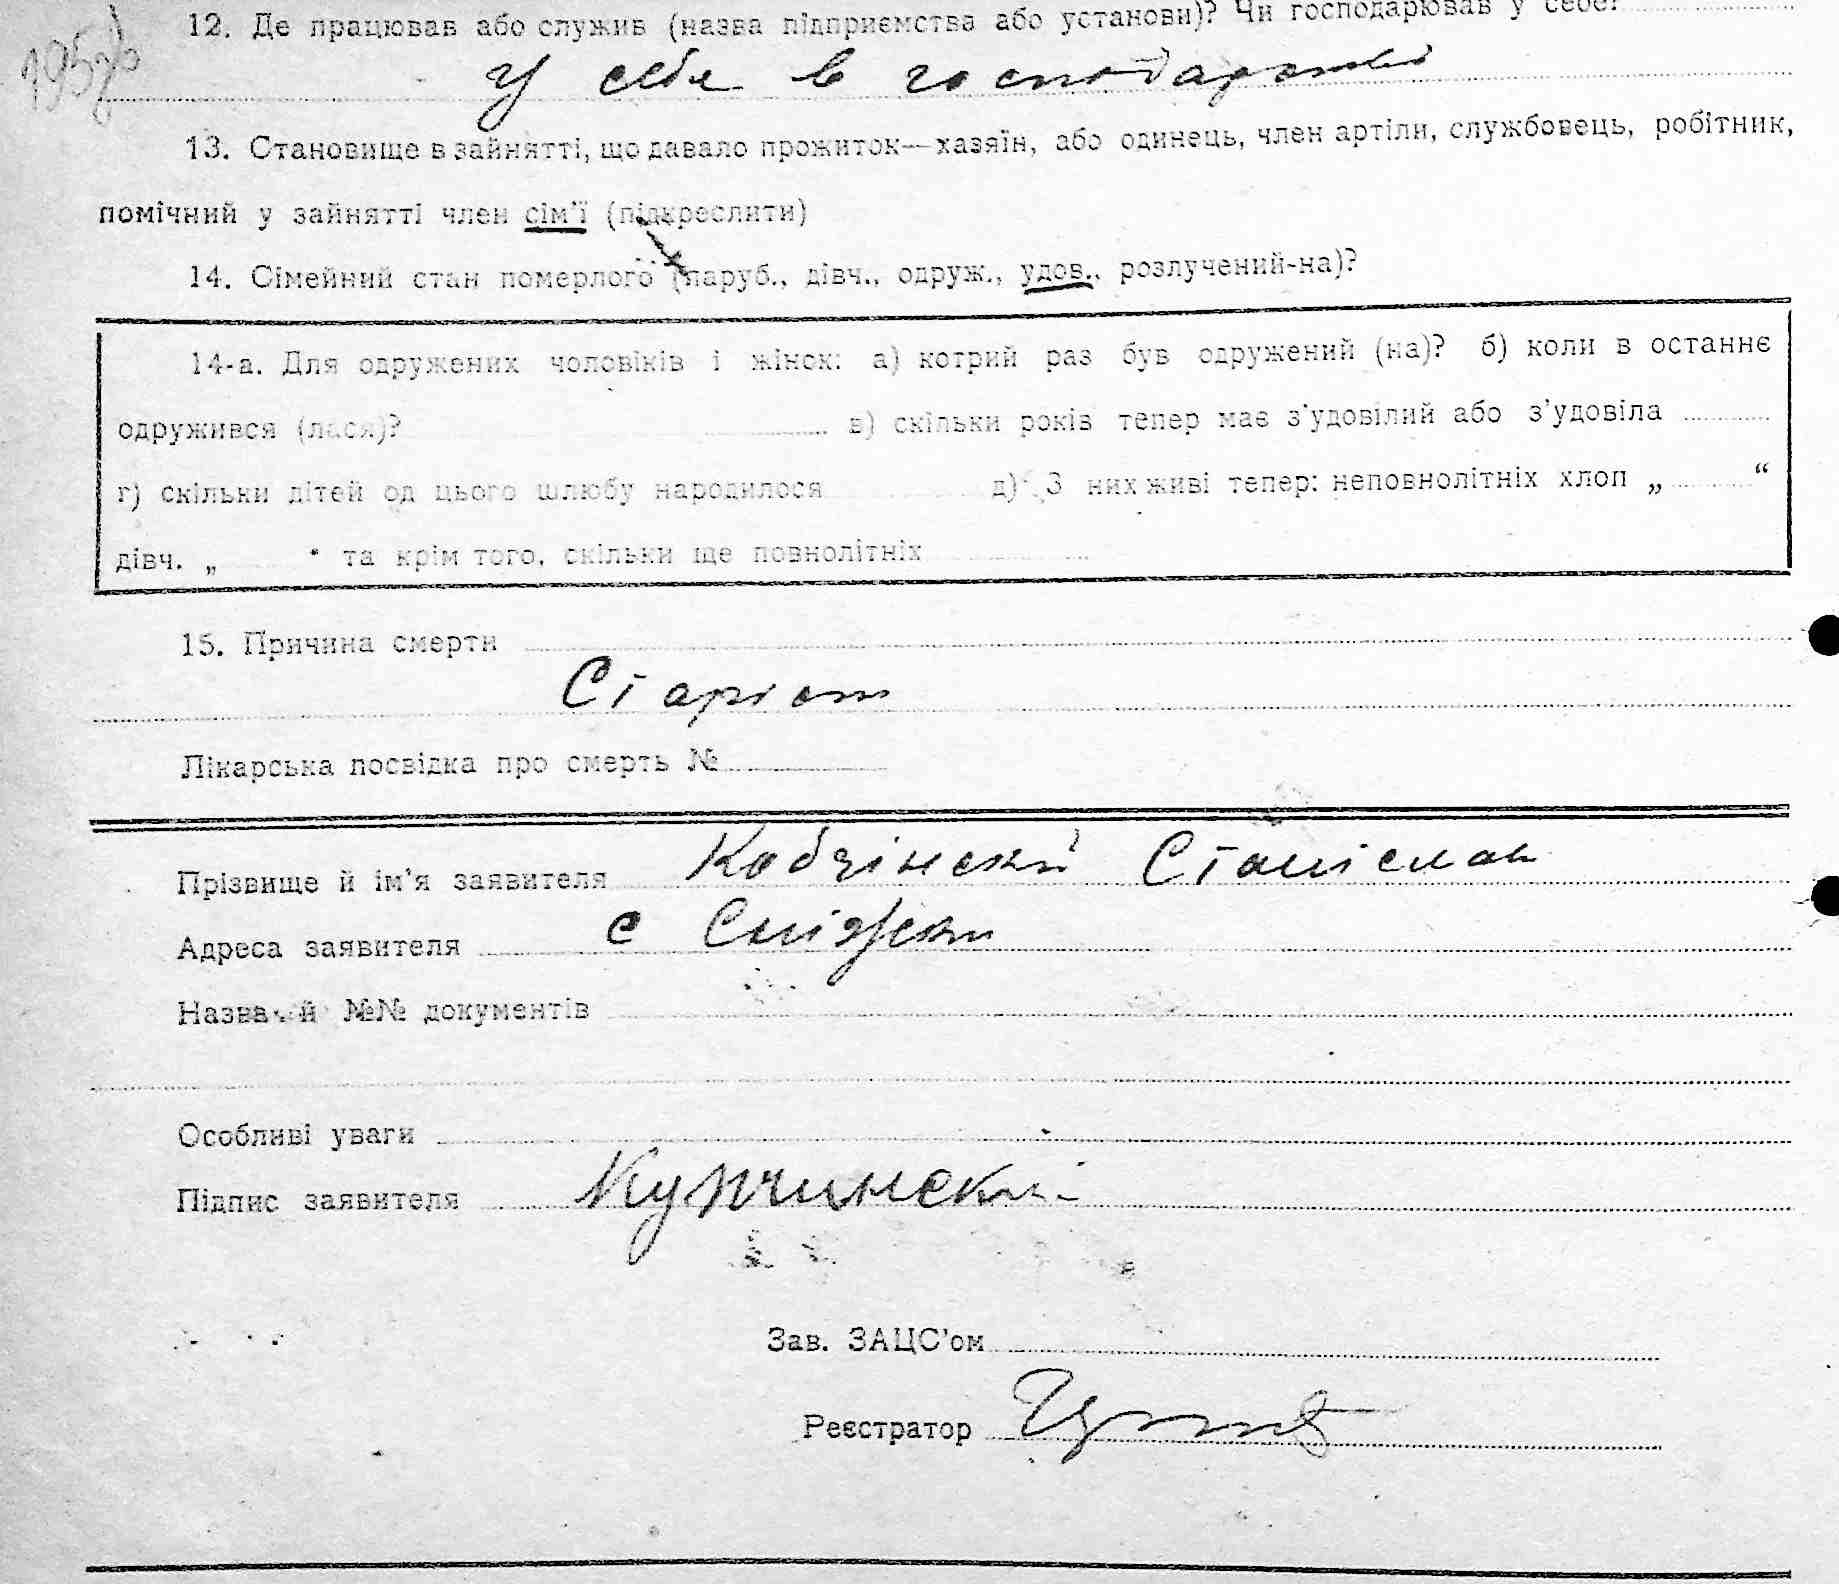 12. Де працював або служив (назва підприємства або установи)? Чи господарював у себе?
У себе в господарстві
13. Становище в зайнятті, що давало прожиток—хазяїн, або одинець, член артіли, службовець, робітник,
помічний у зайнятті член сім'ї (підкреслити)
14. Сімейний стан померлого (паруб., дівч., одруж., удов., розлучений-на)?
14-а. Для одружених чоловіків і жінок: а) котрий раз був одружений (на)? б) коли в останнє
одружився (лася)? в) скільки років тепер має з'удовілий або з'удовіла
г) скільки дітей од цього шлюбу народилося д) З них живі тепер: неповнолітніх хлоп „ “
дівч. „ “ та крім того, скільки ще повнолітніх
15. Причина смерти
Старіст
Лікарська посвідка про смерть №
Прізвище й ім'я заявителя Кобчінский Станіслав
Адреса заявителя с Сніжки
Назва й №№ документів
Особливі уваги
Підпис заявителя
Зав. ЗАЦС'ом
Реєстратор